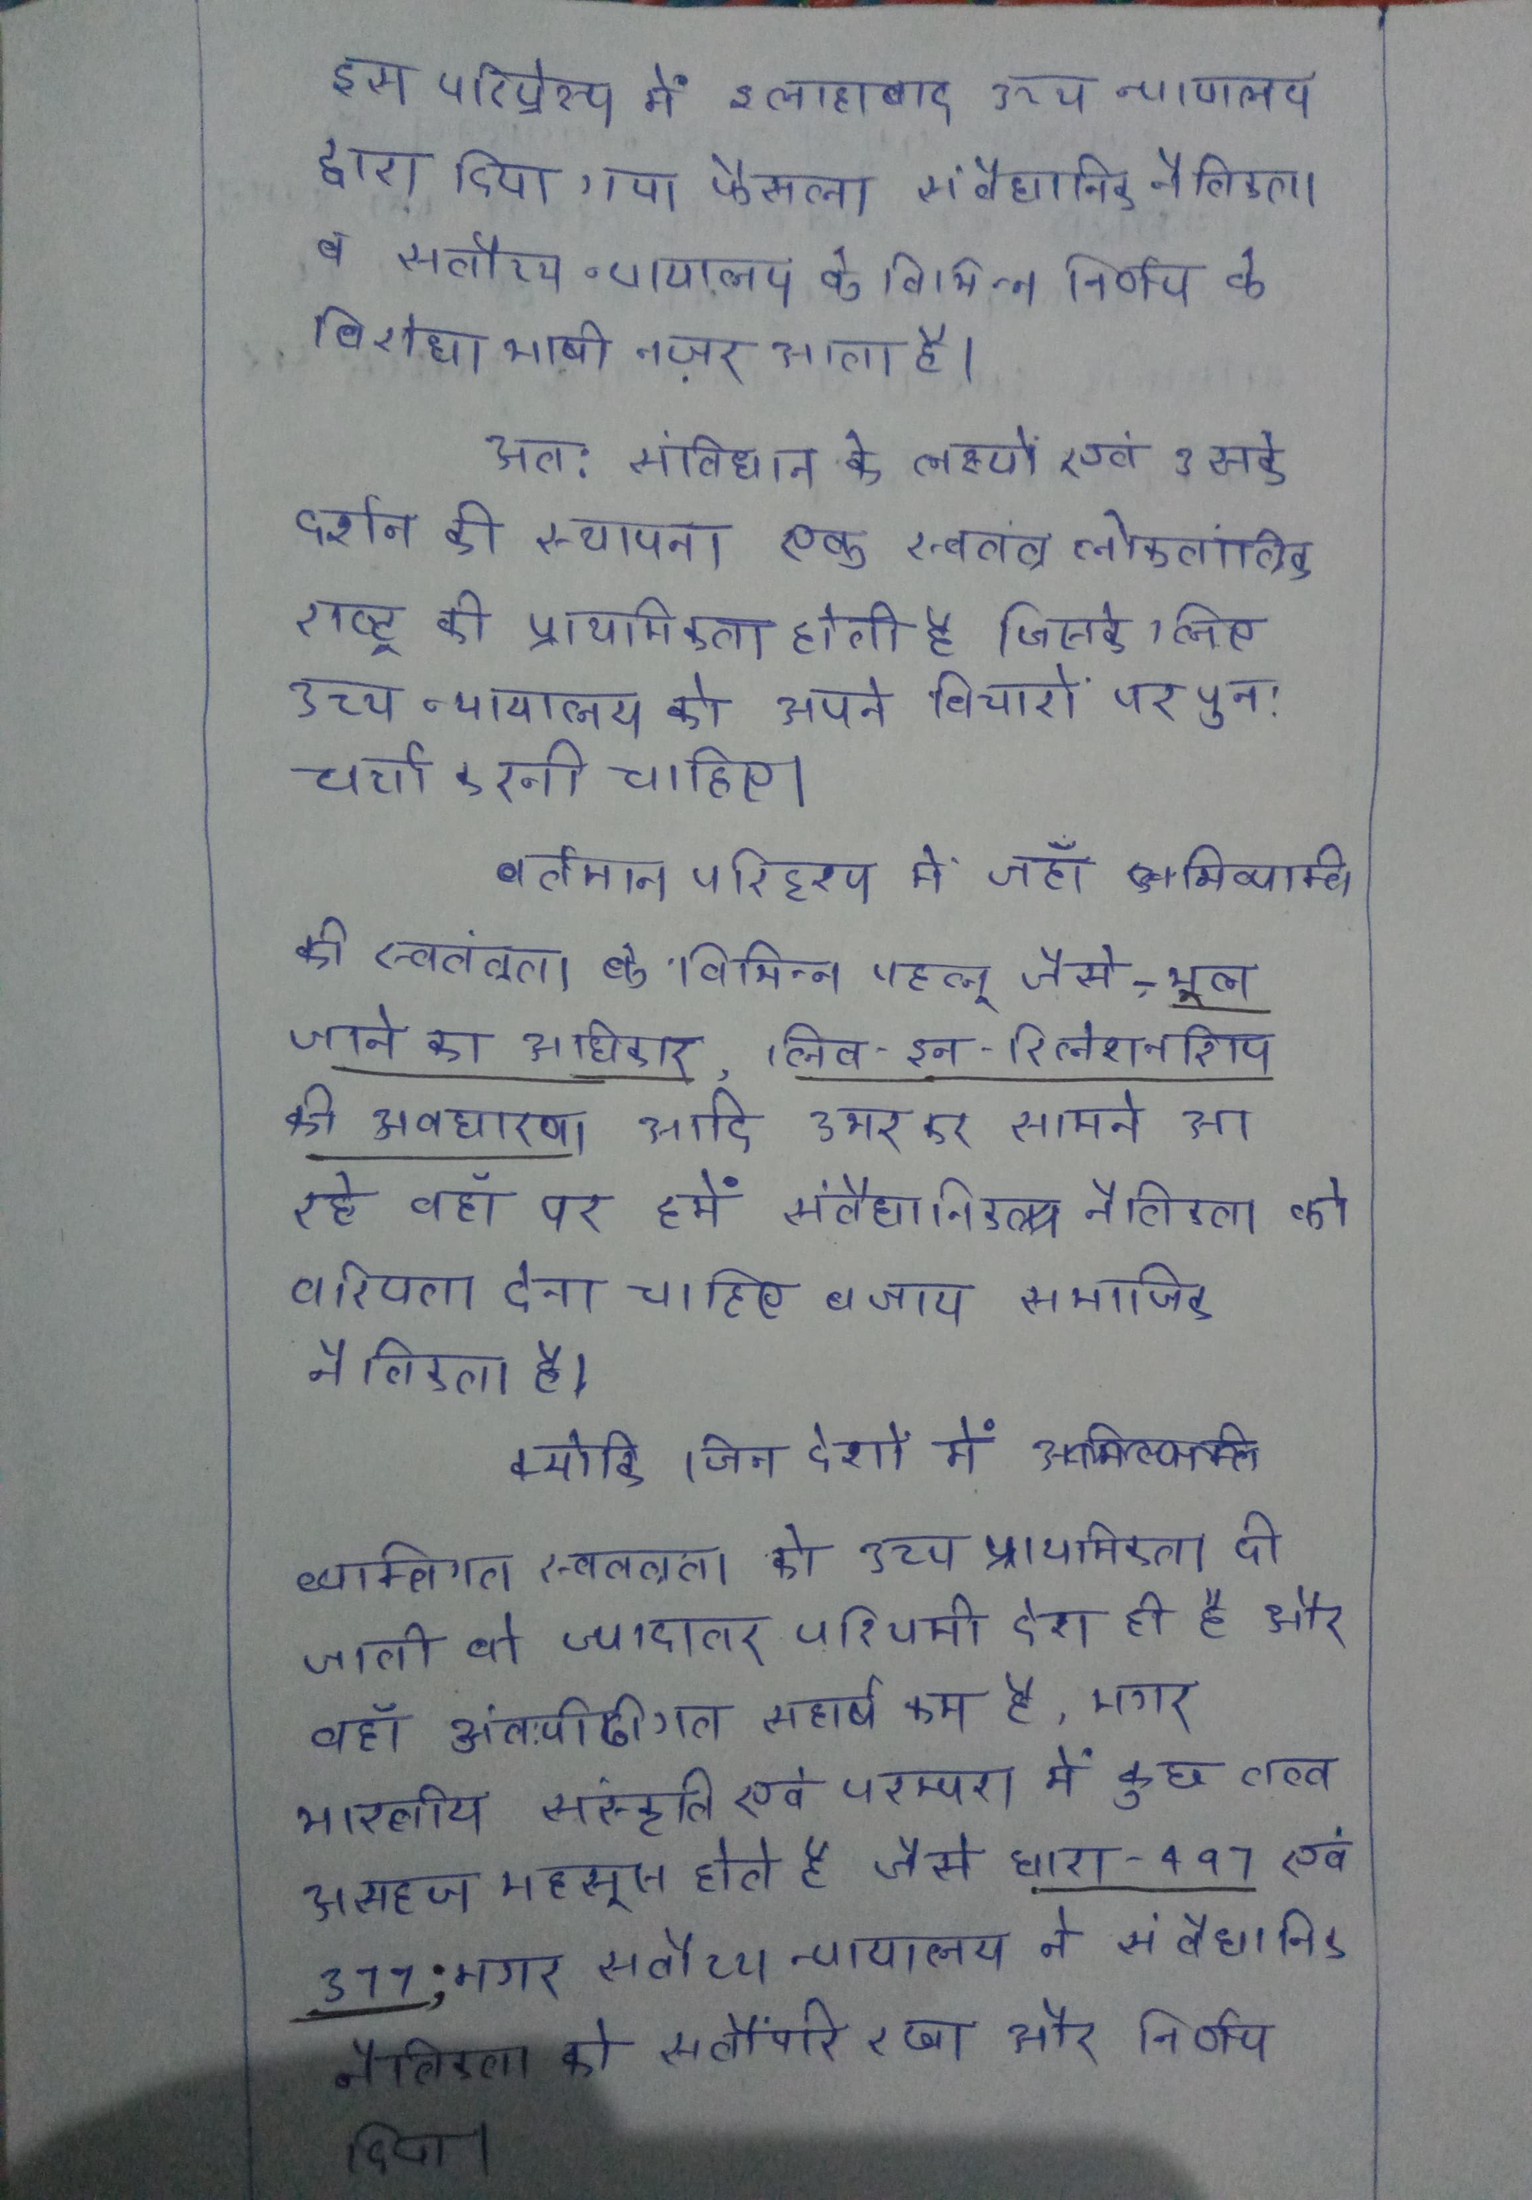 इस परिप्रेक्ष्य में इलाहाबाद उच्च न्यायालय
द्वारा दिया गया फैसला संवैधानिक नैतिकता
व सर्वोच्च न्यायालय के विभिन्न निर्णय के
विरोधाभाषी नज़र आता है।
अतः संविधान के लक्ष्यों एवं उसके
दर्शन की स्थापना एक स्वतंत्र लोकतांत्रिक
राष्ट्र की प्राथमिकता होती है जिसके लिए
उच्च न्यायालय को अपने विचारों पर पुनः
चर्चा करनी चाहिए।
वर्तमान परिदृश्य में जहाँ अभिव्यक्ति
की स्वतंत्रता के विभिन्न पहलू जैसे - भूल
जाने का अधिकार, लिव-इन-रिलेशनशिप
की अवधारणा आदि उभर कर सामने आ
रहे वहाँ पर हमें संवैधानिक नैतिकता को
वरियता देना चाहिए बजाय समाजिक
नैतिकता है।
क्योकि जिन देशों में
व्यक्तिगत स्वतत्रता को उच्च प्राथमिकता दी
जाती वो ज्यादातर पश्चिमी देश ही है और
वहाँ अंतःपीढीगत सहार्ष कम है, मगर
भारतीय संस्कृति एवं परम्परा में कुछ तत्व
असहज महसूस होते है जैसे धारा-497 एवं
377; मगर सर्वोच्च न्यायालय ने संवैधानिक
नैतिकता को सर्वोंपरि रखा और निर्णय
दिया।